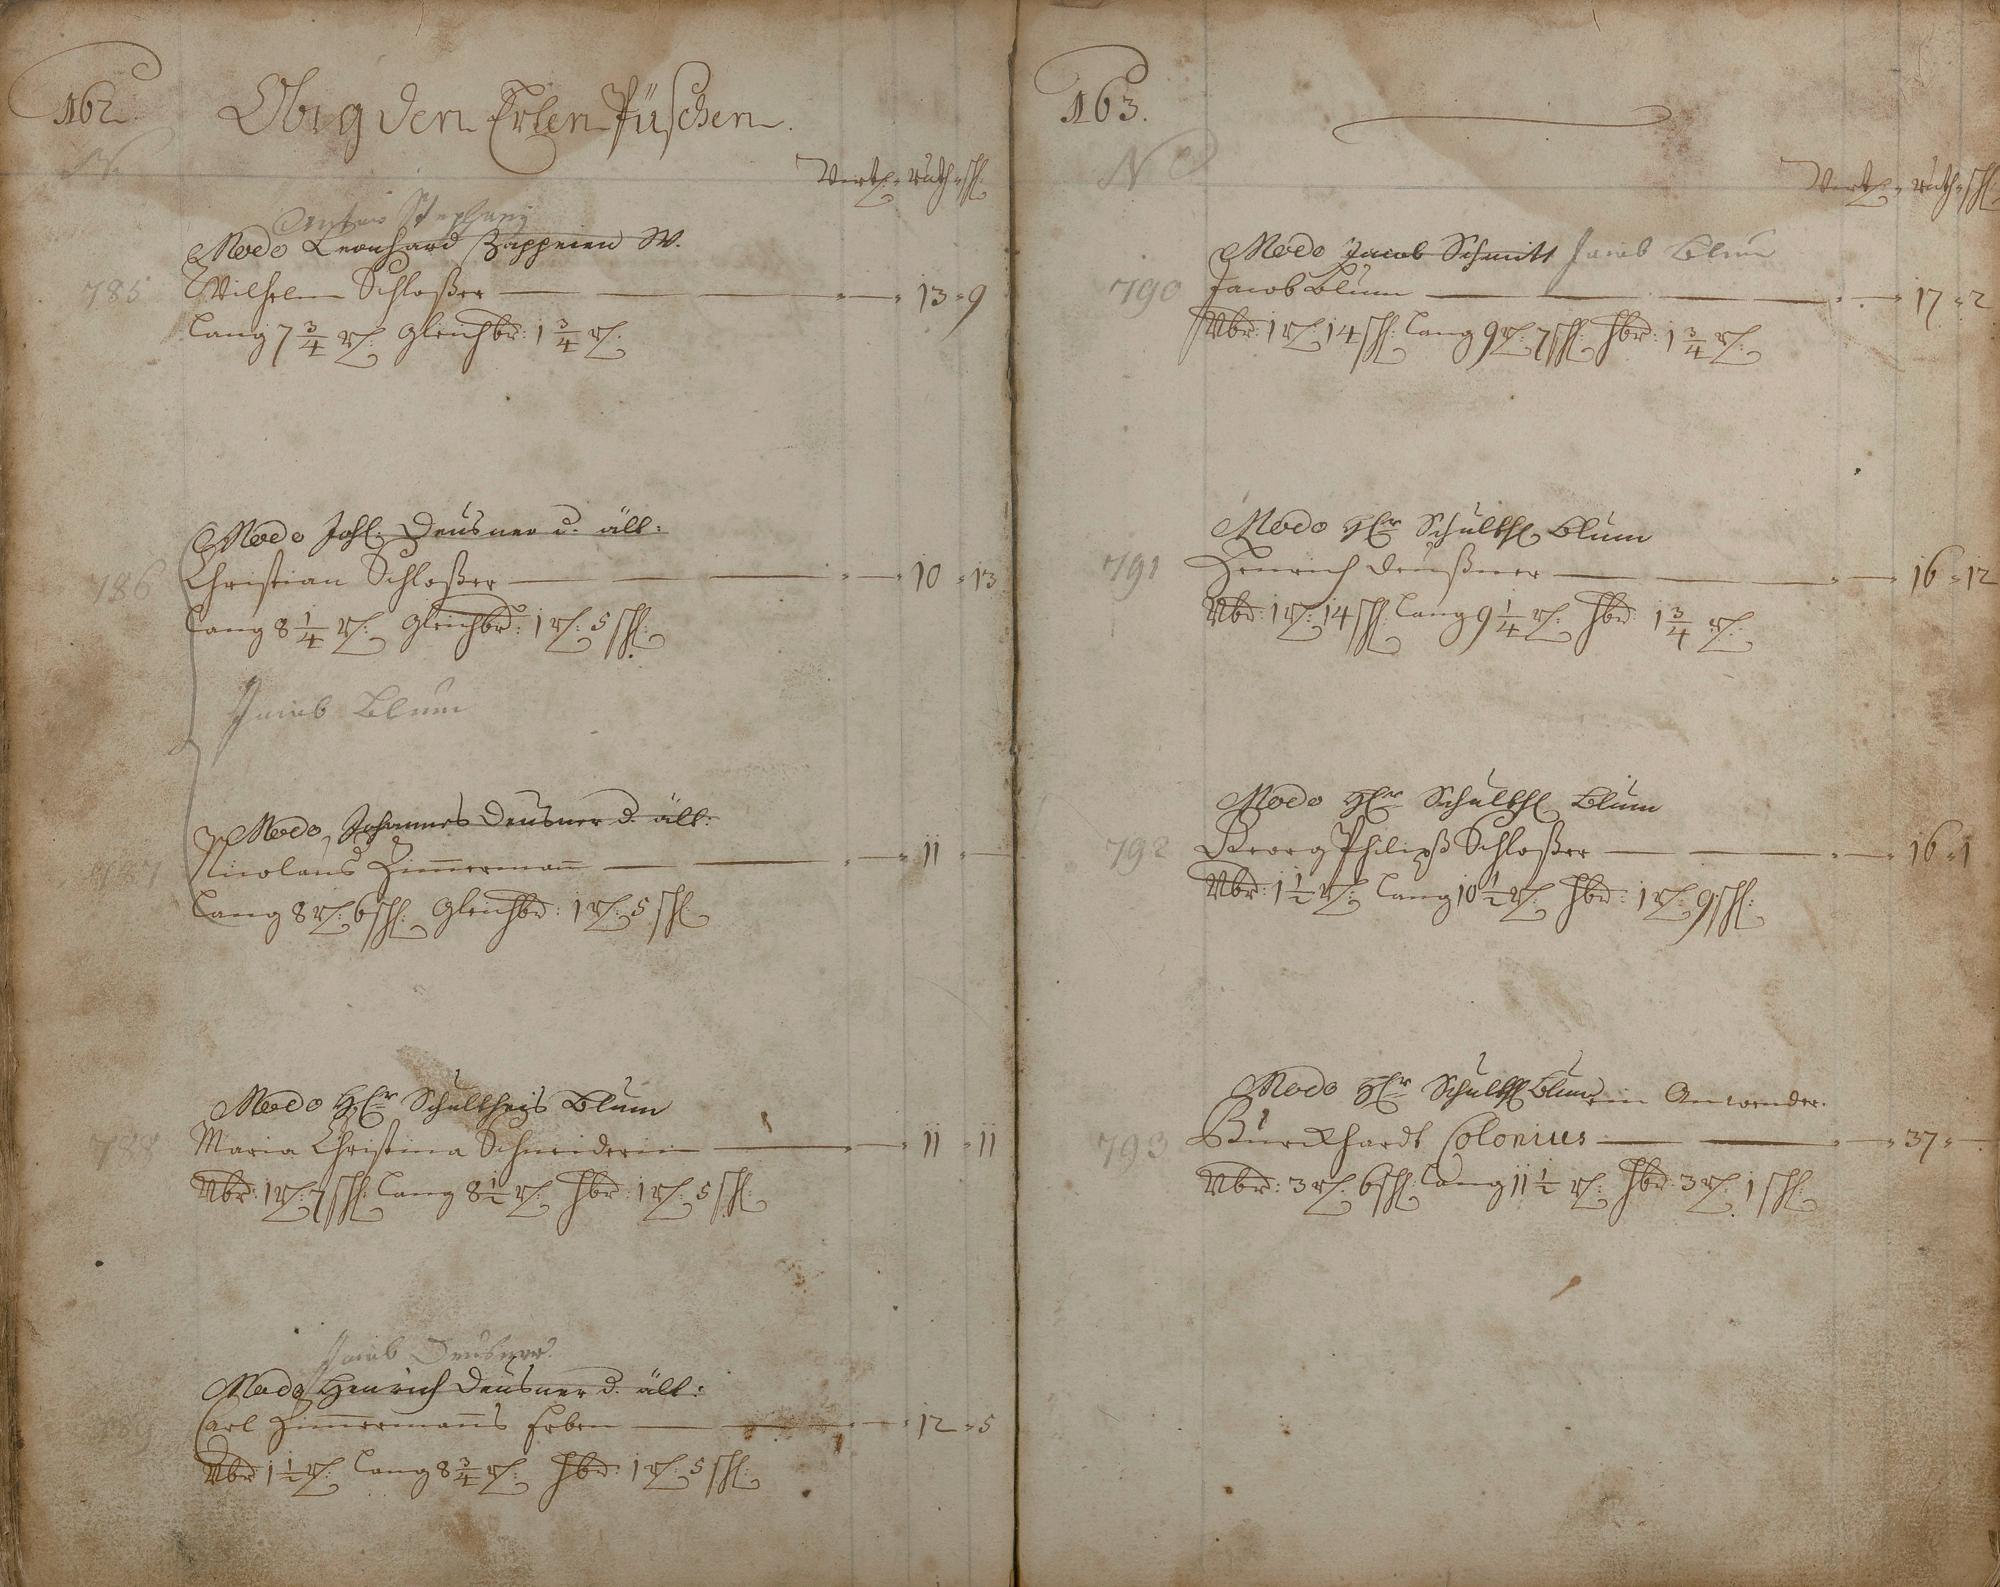 162.
Obig den Erlen Püschen.
N.
Virtl. ruth. schl.
Anton Stephany
Modo Leonhard Zappeien W.
785 Wilhelm Schloßer — 13 = 9
Lang 7 3/4 rt: gleichbr: 1 3/4 rt:
Modo Joh: Deusner d. ält:
786 Christian Schloßer — 10 = 13
Lang 8 1/4 rt: gleichbr: 1 rt: 5 schl:
Jacob Blum
Modo Johannes Deusner d. ält:
787 Nicolaus Zim̅erman̅ — 11 = —
Lang 8 rt: 6 schl: gleichbr: 1 rt: 5 schl:
Modo Hr Schultheis Blum
788 Maria Christina Schneiderin — 11 = 11
Obr: 1 rt: 7 schl: Lang 8 1/2 rt: Hbr: 1 rt: 5 schl:
Jacob Deusner
Modo Henrich Deusner d. ält:
789 Carl Zim̅erman̅s Erben — 12 = 5
Obr: 1 1/2 rt: Lang 8 3/4 rt: Hbr: 1 rt: 5 schl:
163.
N
Virtl. ruth. schl.
Modo Jacob Schmitt Jacob Blum
790 Jacob Blum — 17 = 2
Obr: 1 rt: 14 schl: Lang 9 rt: 7 schl: Hbr: 1 3/4 rt:
Modo Hr Schulths Blum
791 Henrich Deußner — 16 = 12
Obr: 1 rt: 14 schl: Lang 9 1/4 rt: Hbr: 1 3/4 rt:
Modo Hr Schulths Blum
792 Georg Philipß Schloßer — 16 = 1
Obr: 1 1/2 rt: Lang 10 1/2 rt: Hbr: 1 rt: 9 schl:
Modo Hr Schulths Blum ein Anwender.
793 Burckhardt Colonius — 37 = —
Obr: 3 rt: 6 schl: Lang 11 1/2 rt: Hbr: 3 rt: 1 schl: